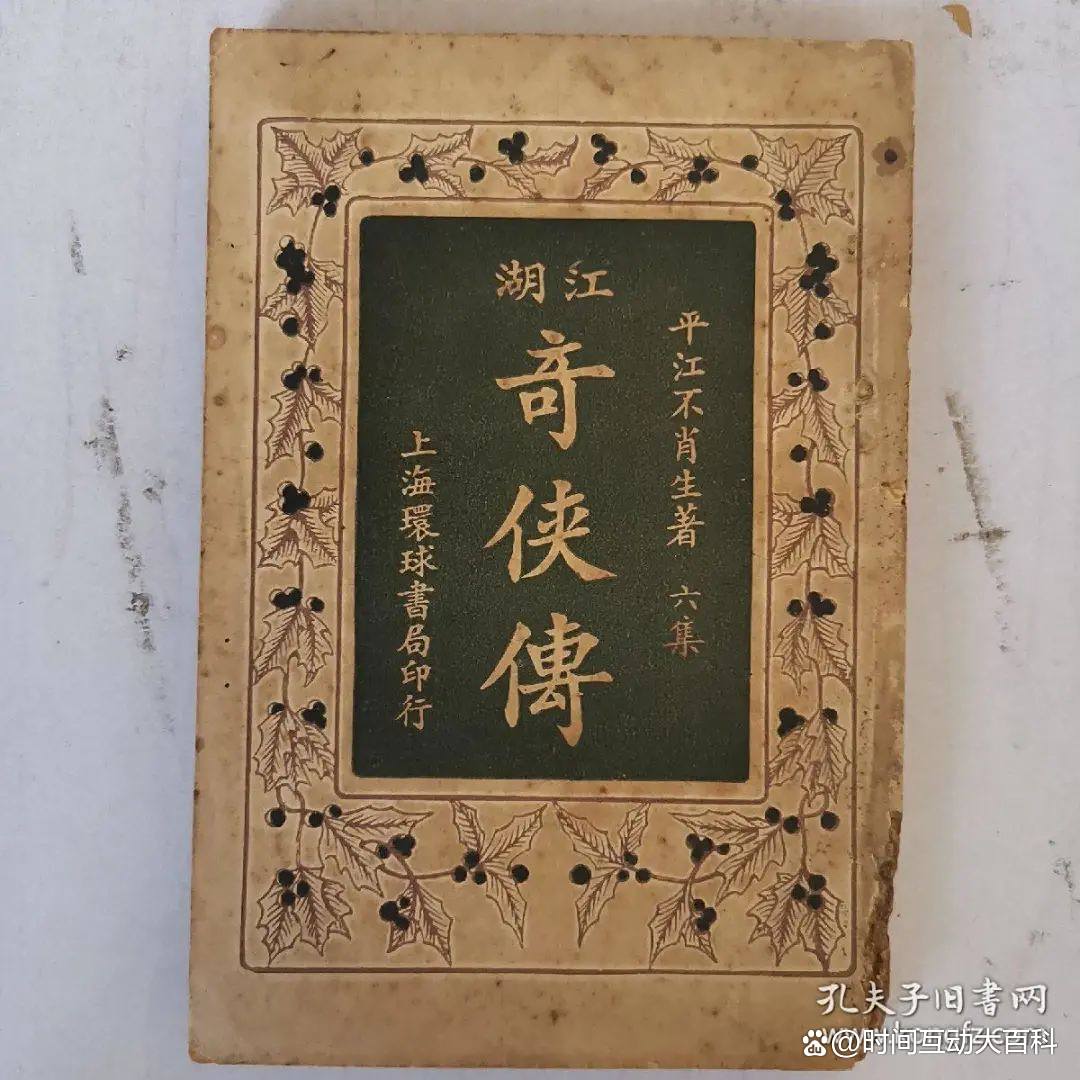 平江不肖生著 六集
江湖
奇俠傳
上海環球書局印行
孔夫子旧書网
@时间互动大百科